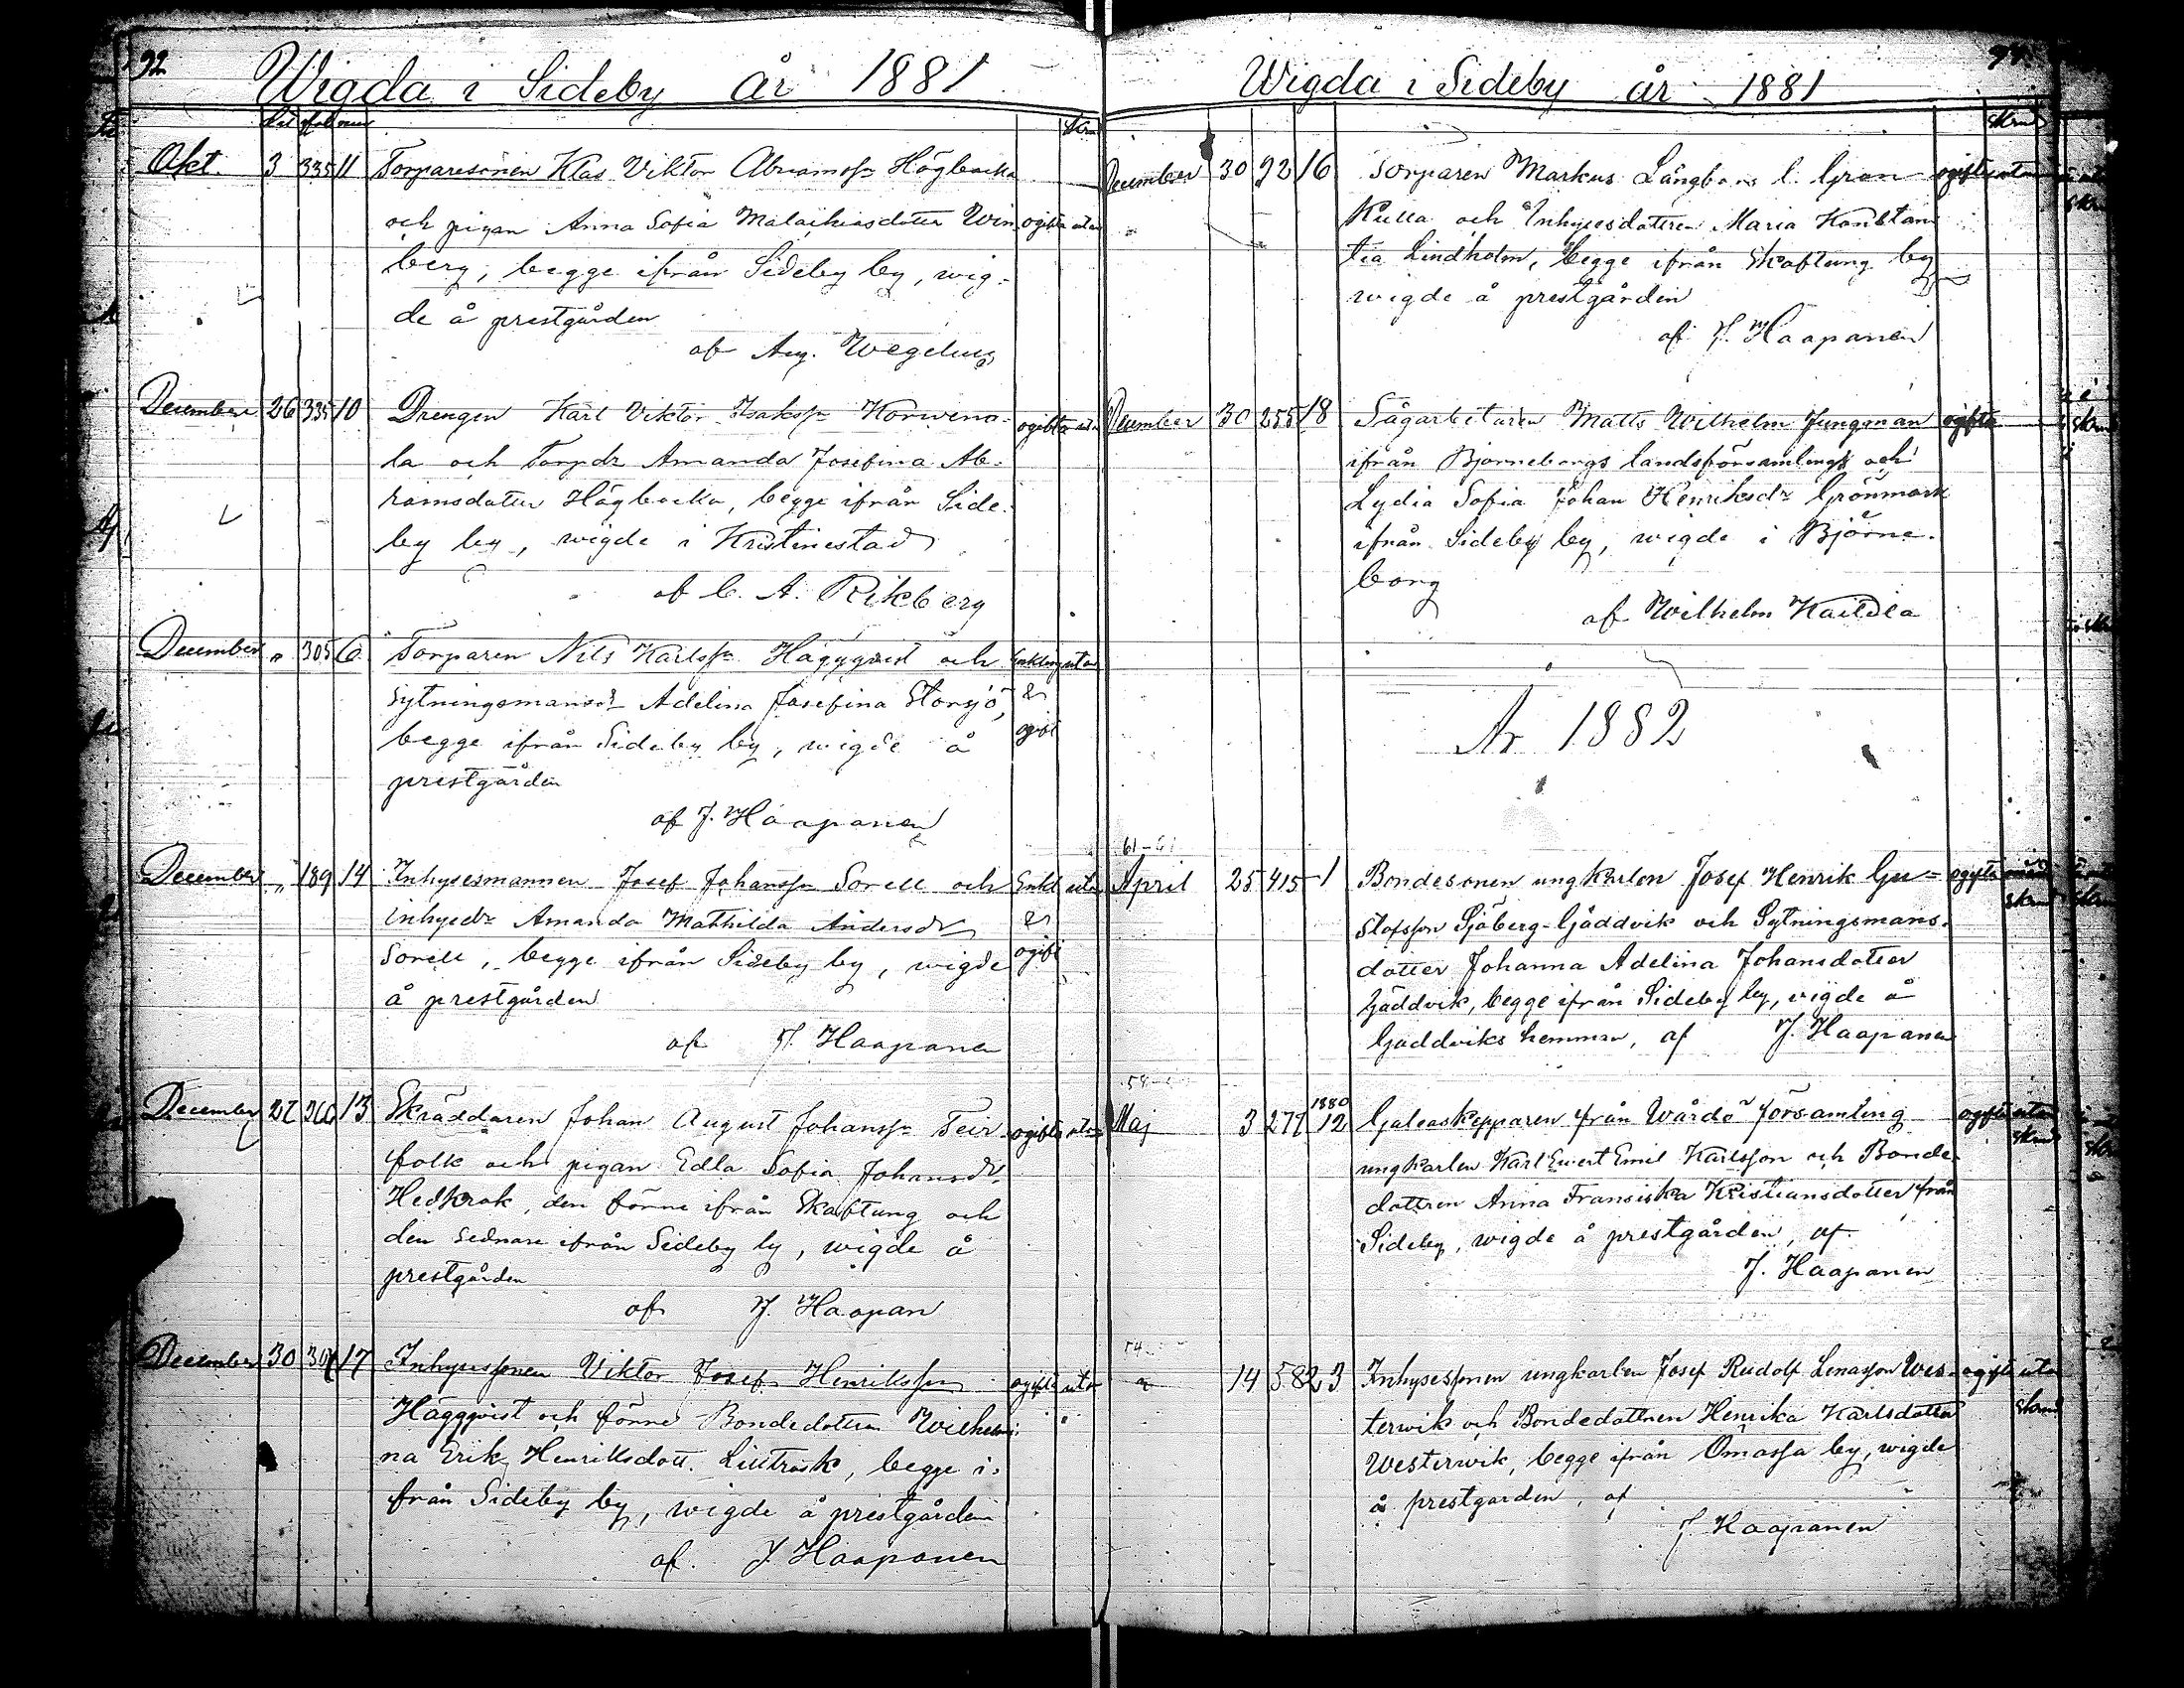 92
Wigda i Sideby år 1881
Okt. 3 335 11 Torparesonen Klas Viktor Abramssn Högbacka
och pigan Anna Sofia Malachiasdotter Win- ogifta utan
berg, begge ifrån Sideby by, wig-
de å prestgården
af Aug. Wegelius
December 26 335 10 Drengen Karl Viktor Isakssn Korweno- ogifta utan
la och Torpdr Amanda Josefina Ab-
ramsdotter Högbacka, begge ifrån Side-
by by, wigde i Kristinestad
af C. A. Rikberg
December " 305 6 Torparen Nils Karlssn Häggqvist och Enkling utan
Sytningsmansdr Adelina Josefina Storsjö, &
begge ifrån Sideby by, wigde å ogift
prestgården
af J. Haapanen
December " 189 14 Inhysesmannen Josef Johanssn Sorell och Enkl utan
inhysdr Amanda Mathilda Andersdr &
Sorell, begge ifrån Sideby by, wigde ogift
å prestgården
af J. Haapanen
December 27 13 Skräddaren Johan August Johanssn Teir- ogifta utan
folk och pigan Edla Sofia Johansdr
Hedkrok, den förre ifrån Skaftung och
den sednare ifrån Sideby by, wigde å
prestgården
af J. Haapan
December 30 17 Inhysessonen Viktor Josef Henrikssn ogifta utan
Häggqvist och förre Bondedottren Wilhelmi-
na Erik Henriksdott. Littrosk, begge i-
från Sideby by, wigde å prestgården
af J. Haapanen
Wigda i Sideby år 1881
skrud
December 30 92 16 Torparen Markus Långbers l. Gran- ogifta utan
kulla och Inhysesdottren Maria Konstan-
tia Lindholm, begge ifrån Skaftung by
wigde å prestgården
af J. Haapanen
December 30 255 18 Sågarbetaren Matts Wilhelm Jungman ogifta
ifrån Björneborgs landsförsamling och
Lydia Sofia Johan Henriksdr Grönmark
ifrån Sideby by, wigde i Björne-
borg
af Wilhelm Kaildea
År 1882
April 25 415 1 Bondesonen ungkarlen Josef Henrik Gu= ogifta
stafsson Sjöberg-Gäddvik och Sytningsmans- skrud
dotter Johanna Adelina Johansdotter
Gäddvik, begge ifrån Sideby by, wigde å
Gäddviks hemman, af J. Haapanen
1880
Maj 3 277 12 Galeaskepparen från Wårdö församling ogifta utan
ungkarlen Karl Evert Emil Karlsson och Bonde- skrud
dottren Anna Fransiska Kristiansdotter från
Sideby, wigde å prestgården, af
J. Haapanen
" 14 582 3 Inhysessonen ungkarlen Josef Rudolf Lenasson Wes- ogifta utan
terwik och Bondedottren Henrika Karlsdotter skrud
Westerwik, begge ifrån Ömossa by, wigde
å prestgården, af
J. Haapanen